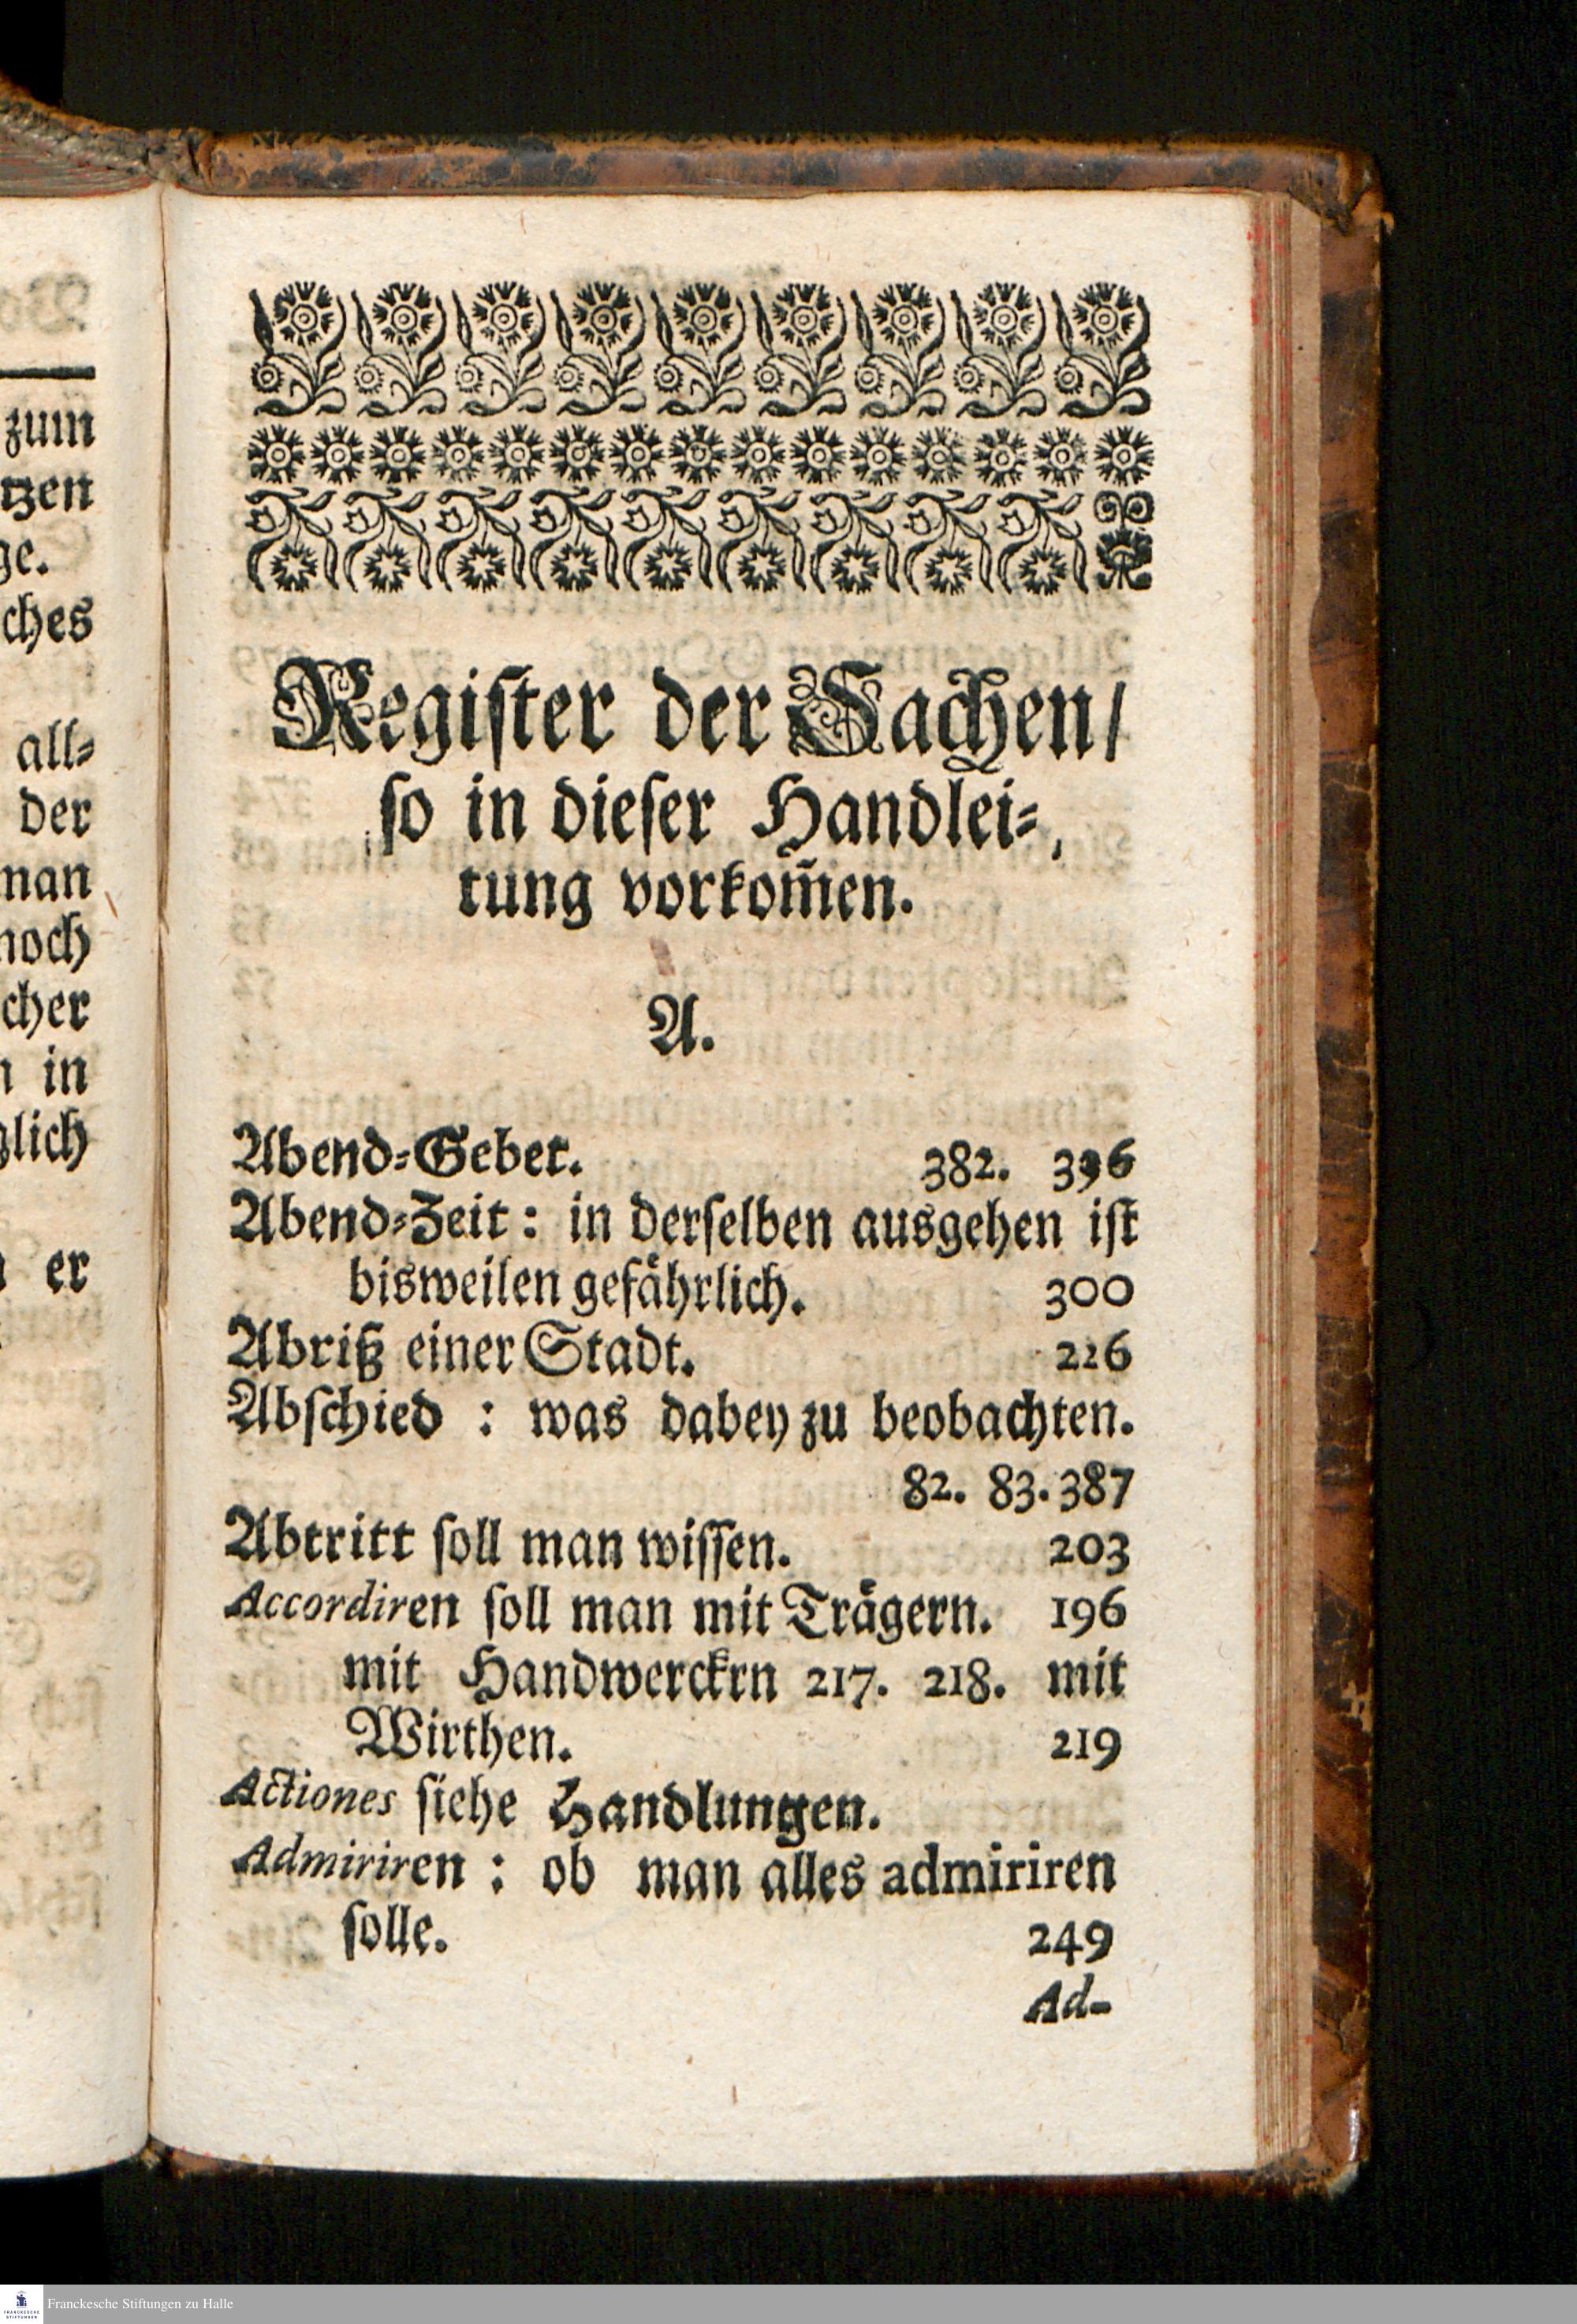 zum
tzen
ge.
ches
all⸗
der
man
noch
cher
n in
glich
er
Regiſter der Sachen/
ſo in dieſer Handlei⸗
tung vorkom̄en.
A.
Abend⸗Gebet. 382. 396
Abend⸗Zeit: in derſelben ausgehen iſt
bisweilen gefaͤhrlich. 300
Abriß einer Stadt. 226
Abſchied : was dabey zu beobachten.
82. 83. 387
Abtritt ſoll man wiſſen. 203
Accordiren ſoll man mit Traͤgern. 196
mit Handwerckrn 217. 218. mit
Wirthen. 219
Actiones ſiehe Handlungen.
Admiriren : ob man alles admiriren
ſolle. 249
Ad-
FRANCKESCHE
STIFTUNGEN
Franckesche Stiftungen zu Halle